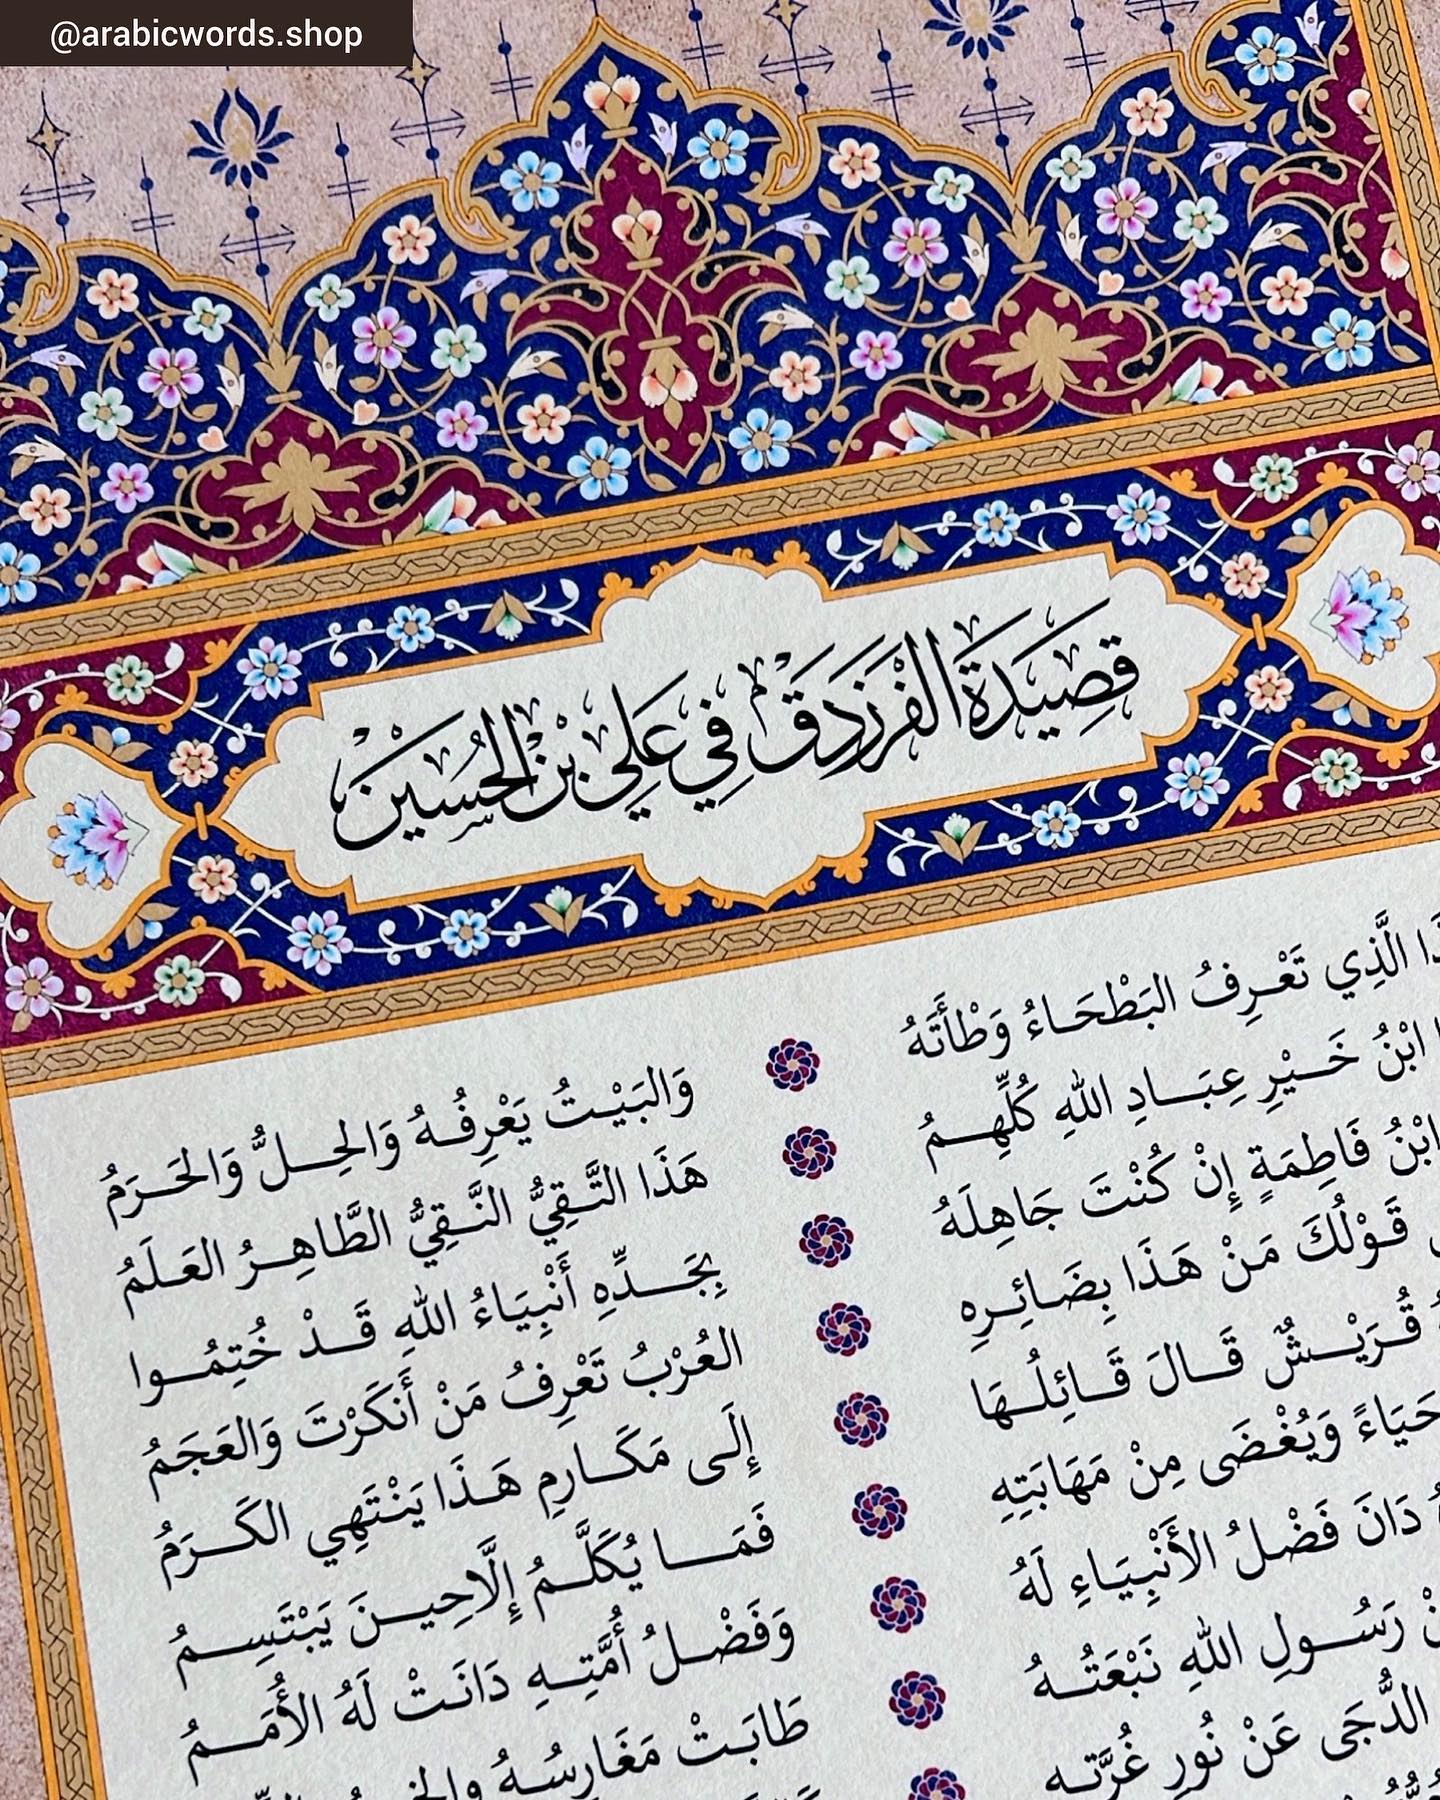 @arabicwords.shop
قَصِيدَة الفَرَزدَق فِي عَلِي بن الحُسَين
الَّذِي تَعْرِفُ البَطْحَاءُ وَطْأَتَهُ وَالبَيْتُ يَعْرِفُهُ وَالحِلُّ وَالحَرَمُ
ابْنُ خَيْرِ عِبَادِ اللهِ كُلِّهِمُ هَذَا التَّقِيُّ النَّقِيُّ الطَّاهِرُ العَلَمُ
ابْنُ فَاطِمَةٍ إِنْ كُنْتَ جَاهِلَهُ بِجَدِّهِ أَنْبِيَاءُ اللهِ قَدْ خُتِمُوا
قَوْلُكَ مَنْ هَذَا بِضَائِرِهِ العُرْبُ تَعْرِفُ مَنْ أَنكَرْتَ وَالعَجَمُ
قُرَيْشٌ قَالَ قَائِلُهَا إِلَى مَكَارِمِ هَذَا يَنْتَهِي الكَرَمُ
حَيَاءً وَيُغْضَى مِنْ مَهَابَتِهِ فَمَا يُكَلَّمُ إِلَّا حِينَ يَبْتَسِمُ
دَانَ فَضْلُ الأَنْبِيَاءِ لَهُ وَفَضْلُ أُمَّتِهِ دَانَتْ لَهُ الأُمَمُ
رَسُولِ اللهِ نَبْعَتُهُ طَابَتْ مَغَارِسُهُ
الدُّجَى عَنْ نُورِ غُرَّتِهِ